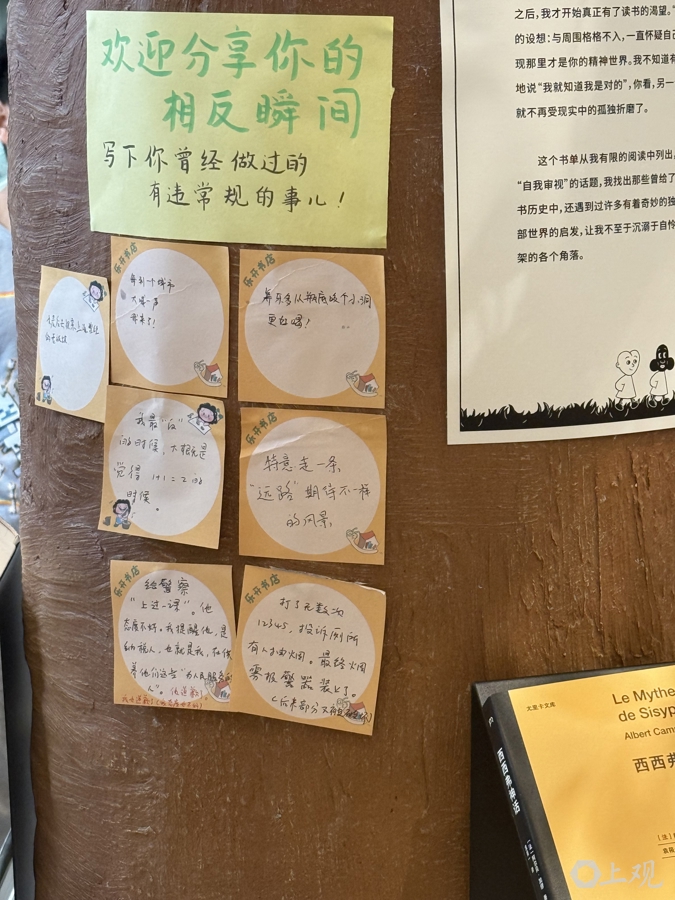 欢迎分享你的
相反瞬间
写下你曾经做过的
有违常规的事儿！
乐开书店
每到一个城市
大喊一声
我来了！
乐开书店
更好喝！
我最“反”
的时候，大概就是
觉得 1+1=2 的
时候。
乐开书店
特意走一条
“远路”期待不一样
的风景
乐开书店
给警察
“上过一课”。他
态度不好。我提醒他，是
纳税人，也就是我，在供
养他们这些“为人民服务的
人”。他道歉了
乐开书店
打了无数次
12345，投诉厕所
有人抽烟。最终烟
雾报警器装上了。
之后，我才开始真正有了读书的渴望。
的设想：与周围格格不入，一直怀疑自己
现那里才是你的精神世界。我不知道有
地说“我就知道我是对的”，你看，另一
就不再受现实中的孤独折磨了。
这个书单从我有限的阅读中列出，
“自我审视”的话题，我找出那些曾给了
书历史中，还遇到过许多有着奇妙的独
部世界的启发，让我不至于沉溺于自怜
架的各个角落。
尤里卡文库
Le Mythe
de Sisyp
Albert Cam
西西弗
西西弗神话
上观